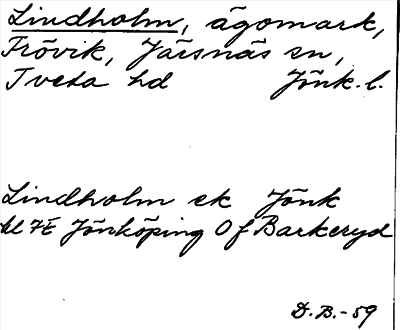 Lindholm, ägomark,
Frövik, Järsnäs sn,
Tveta hd Jönk. l.
Lindholm ek Jönk
bl 7E Jönköping Of Barkeryd
D.B.-59